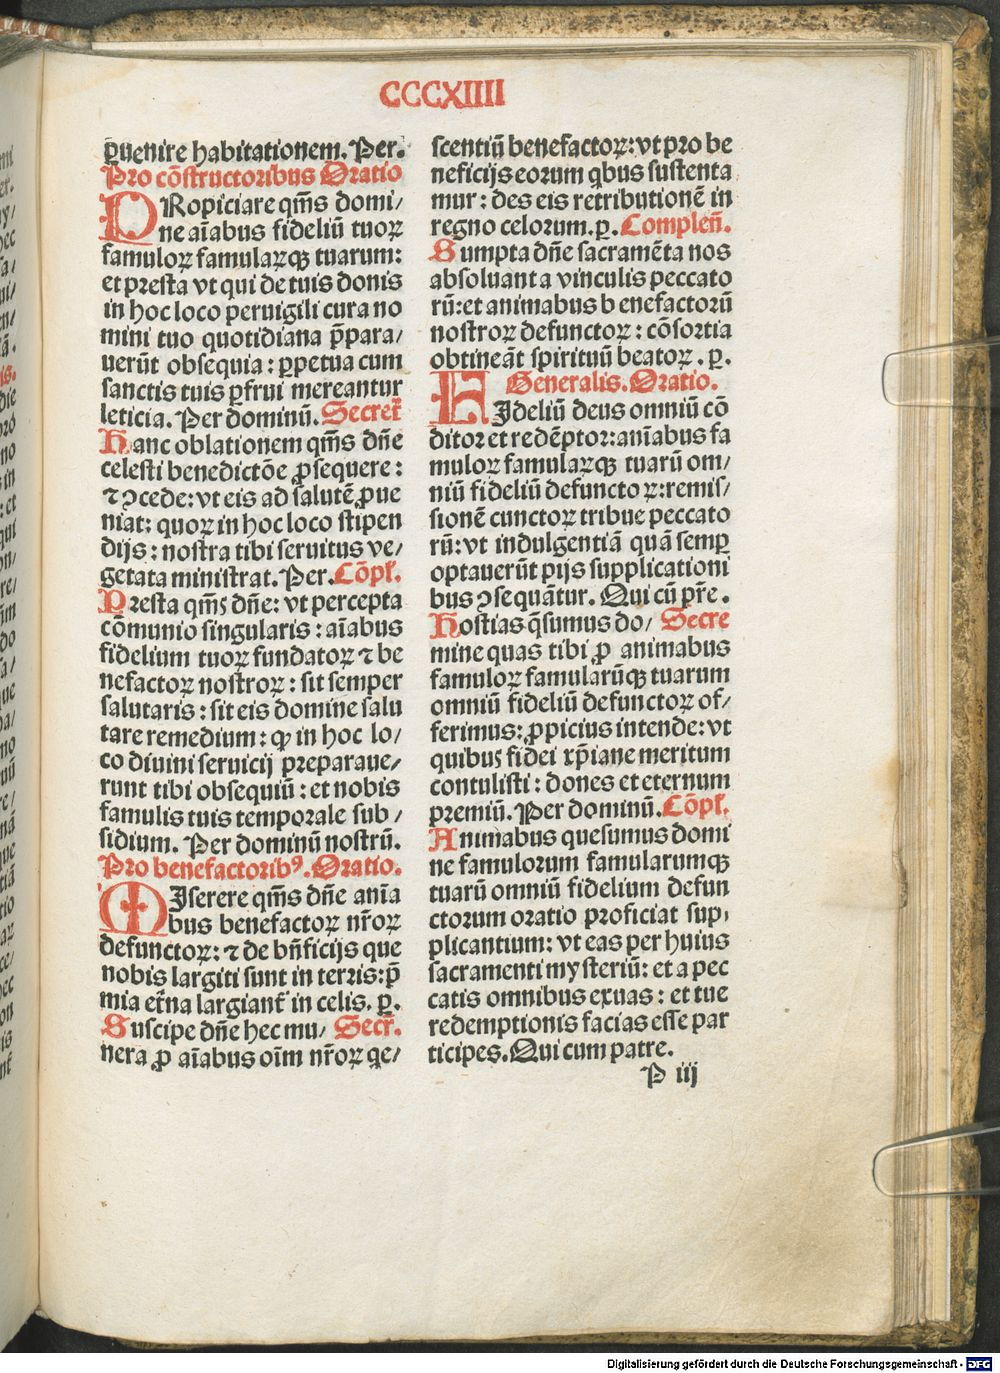 CCCXIIII
ꝑuenire habitationem. Per.
Pro cõstructoribus Oratio
PRopiciare qm̃s domi/
ne aĩabus fideliũ tuoꝝ
famuloꝝ famulaꝝqꝫ tuarum:
et presta vt qui de tuis donis
in hoc loco peruigili cura no
mini tuo quotidiana p̃para/
uerũt obsequia: ꝑpetua cum
sanctis tuis ꝑfrui mereantur
leticia. Per dominũ. Secret̃
Hanc oblationem qm̃s dñe
celesti benedictõe ꝓsequere:
⁊ ꝯcede: vt eis ad salutẽ ꝓue
niat: quoꝝ in hoc loco stipen
dijs: nostra tibi seruitus ve/
getata ministrat. Per. Cõpl̃.
Presta qm̃s dñe: vt percepta
cõmunio singularis: aĩabus
fidelium tuoꝝ fundatoꝝ ⁊ be
nefactoꝝ nostroꝝ: sit semper
salutaris: sit eis domine salu
tare remedium: ꝙ in hoc lo/
co diuini seruicij preparaue/
runt tibi obsequiũ: et nobis
famulis tuis temporale sub/
sidium. Per dominũ nostrũ.
Pro benefactoribꝰ. Oratio.
MIserere qm̃s dñe anĩa
bus benefactoꝝ nr̃oꝝ
defunctoꝝ: ⁊ de bñficijs que
nobis largiti sunt in terris: p̃
mia et̃na largiant̃ in celis. ꝑ.
Suscipe dñe hec mu/ Secr̃.
nera ꝓ aĩabus oĩm nr̃oꝝ qe/
scentiũ benefactoꝝ: vt pro be
neficijs eorum qbus sustenta
mur: des eis retributionẽ in
regno celorum. ꝑ. Compleñ.
Sumpta dñe sacramẽta nos
absoluant a vinculis peccato
rũ: et animabus benefactorũ
nostroꝝ defunctoꝝ: cõsortia
obtineãt spirituũ beatoꝝ. ꝑ.
Generalis. Oratio.
FIdeliũ deus omniũ cõ
ditor et redẽptor: anĩabus fa
muloꝝ famulaꝝqꝫ tuarũ om/
niũ fideliũ defunctoꝝ: remis/
sionẽ cunctoꝝ tribue peccato
rũ: vt indulgentiã quã semꝑ
optauerũt pijs supplicationi
bus ꝯsequãtur. Qui cũ pr̃e.
Hostias q̃sumus do/ Secre
mine quas tibi ꝓ animabus
famuloꝝ famularũqꝫ tuarum
omniũ fideliũ defunctoꝝ of/
ferimus: ꝓpicius intende: vt
quibus fidei xp̃iane meritum
contulisti: dones et eternum
premiũ. Per dominũ. Cõpl̃.
Animabus quesumus domi
ne famulorum famularumqꝫ
tuarũ omniũ fidelium defun
ctorum oratio proficiat sup/
plicantium: vt eas per huius
sacramenti mysteriũ: et a pec
catis omnibus exuas: et tue
redemptionis facias esse par
ticipes. Qui cum patre.
P iij
Digitalisierung gefördert durch die Deutsche Forschungsgemeinschaft - DFG